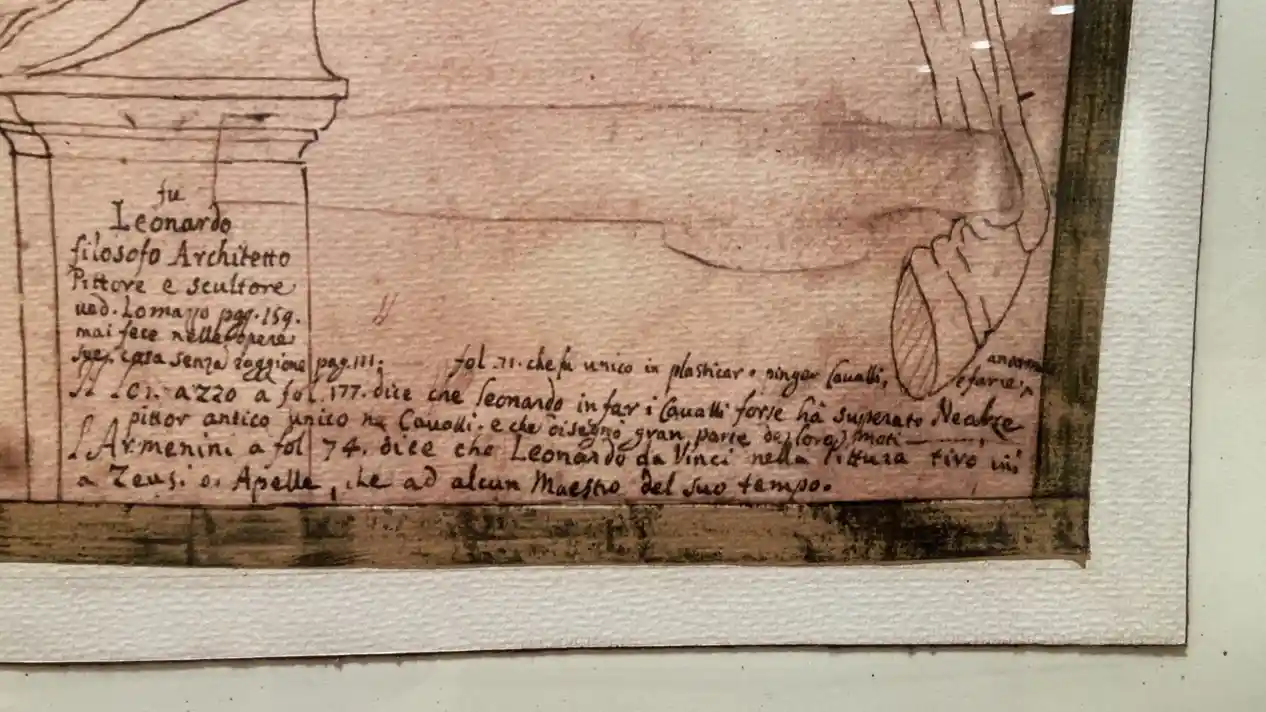 fu
Leonardo
filosofo Architetto
Pittore e scultore
ved. Lomazzo pag. 159.
mai fece nelle opere
sue cosa senza raggione pag. 111.
fol. 71. che fu unico in plasticar e pinger Cavalli,
a fol. 177. dice che Leonardo in far i Cavalli forse hà superato Nealce
pittor antico unico ne Cavalli. e che disegnò gran parte de loro moti
L'Armenini a fol 74. dice che Leonardo da Vinci nella Pittura tirò più
a Zeusi o Apelle, che ad alcun Maestro del suo tempo.